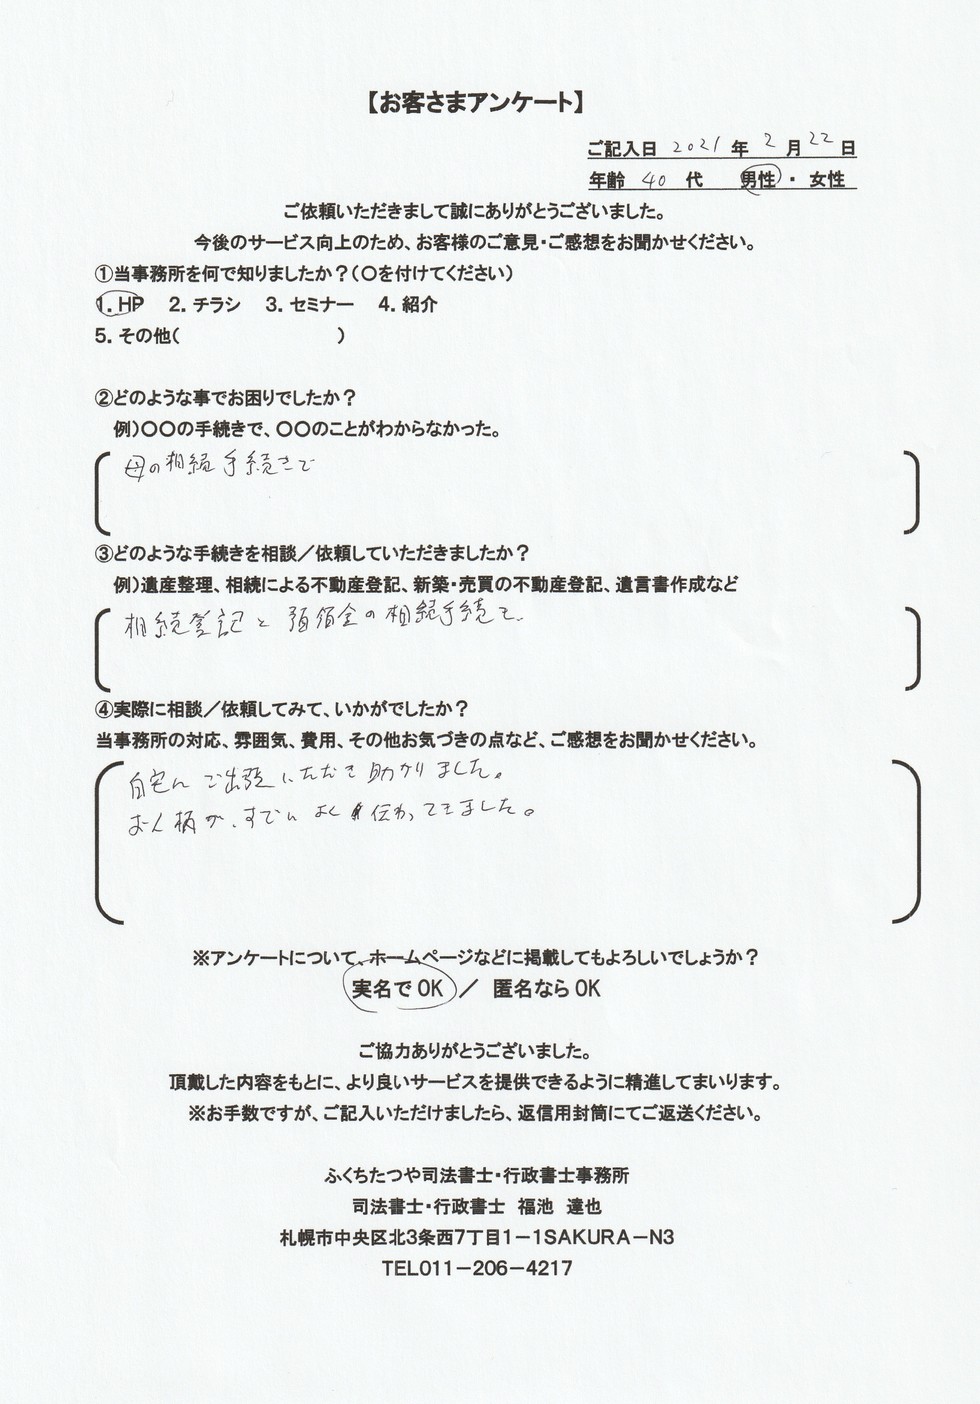 【お客さまアンケート】
ご記入日 2021 年 2 月 22 日
年齢 40 代 男性 ・ 女性
ご依頼いただきまして誠にありがとうございました。
今後のサービス向上のため、お客様のご意見・ご感想をお聞かせください。
①当事務所を何で知りましたか？（〇を付けてください）
1. HP 2. チラシ 3. セミナー 4. 紹介
5. その他（ ）
②どのような事でお困りでしたか？
例）〇〇の手続きで、〇〇のことがわからなかった。
母の相続手続きで
③どのような手続きを相談／依頼していただきましたか？
例）遺産整理、相続による不動産登記、新築・売買の不動産登記、遺言書作成など
相続登記と預貯金の相続手続で
④実際に相談／依頼してみて、いかがでしたか？
当事務所の対応、雰囲気、費用、その他お気づきの点など、ご感想をお聞かせください。
自宅にご出張いただき助かりました。
お人柄が、すでによく伝わってきました。
※アンケートについて、ホームページなどに掲載してもよろしいでしょうか？
実名で OK ／ 匿名なら OK
ご協力ありがとうございました。
頂戴した内容をもとに、より良いサービスを提供できるように精進してまいります。
※お手数ですが、ご記入いただけましたら、返信用封筒にてご返送ください。
ふくちたつや司法書士・行政書士事務所
司法書士・行政書士 福池 達也
札幌市中央区北3条西7丁目1－1SAKURA－N3
TEL011－206－4217